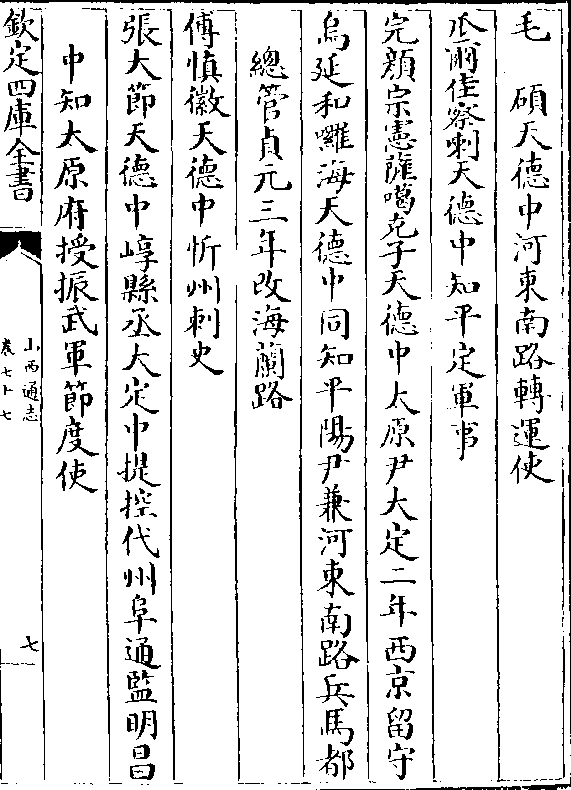 毛　碩天德中河東南路轉運使
瓜爾佳察剌天德中知平定軍事
完顏宗憲薩噶克子天德中太原尹大定二年西京留守
烏延和囉海天德中同知平陽尹兼河東南路兵馬都
總管貞元三年改海蘭路
傅慎徽天德中忻州刺史
張大節天德中崞縣丞大定中提控代州阜通監明昌
中知太原府授振武軍節度使
欽定四庫全書
山西通志
卷七十七
七